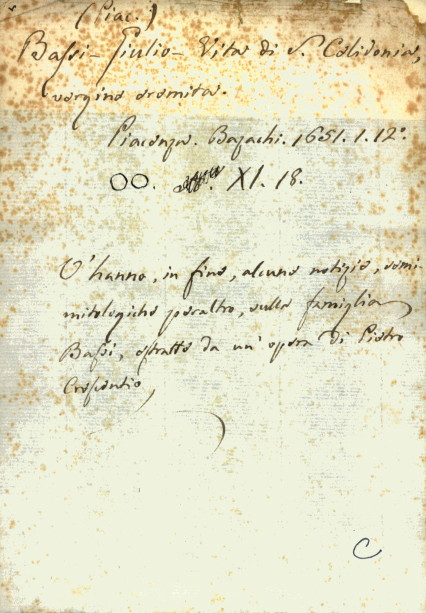 (Piac.)
Bassi - Giulio - Vita di S. Calidonia,
vergine eremita.
Piacenza. Bazachi. 1651. 1. 12°.
OO. XI. 18.
V'hanno, in fine, alcune notizie, semi-
mitologiche peraltro, sulla famiglia
Bassi, estratte da un' opera di Pietro
Crescentio,
C